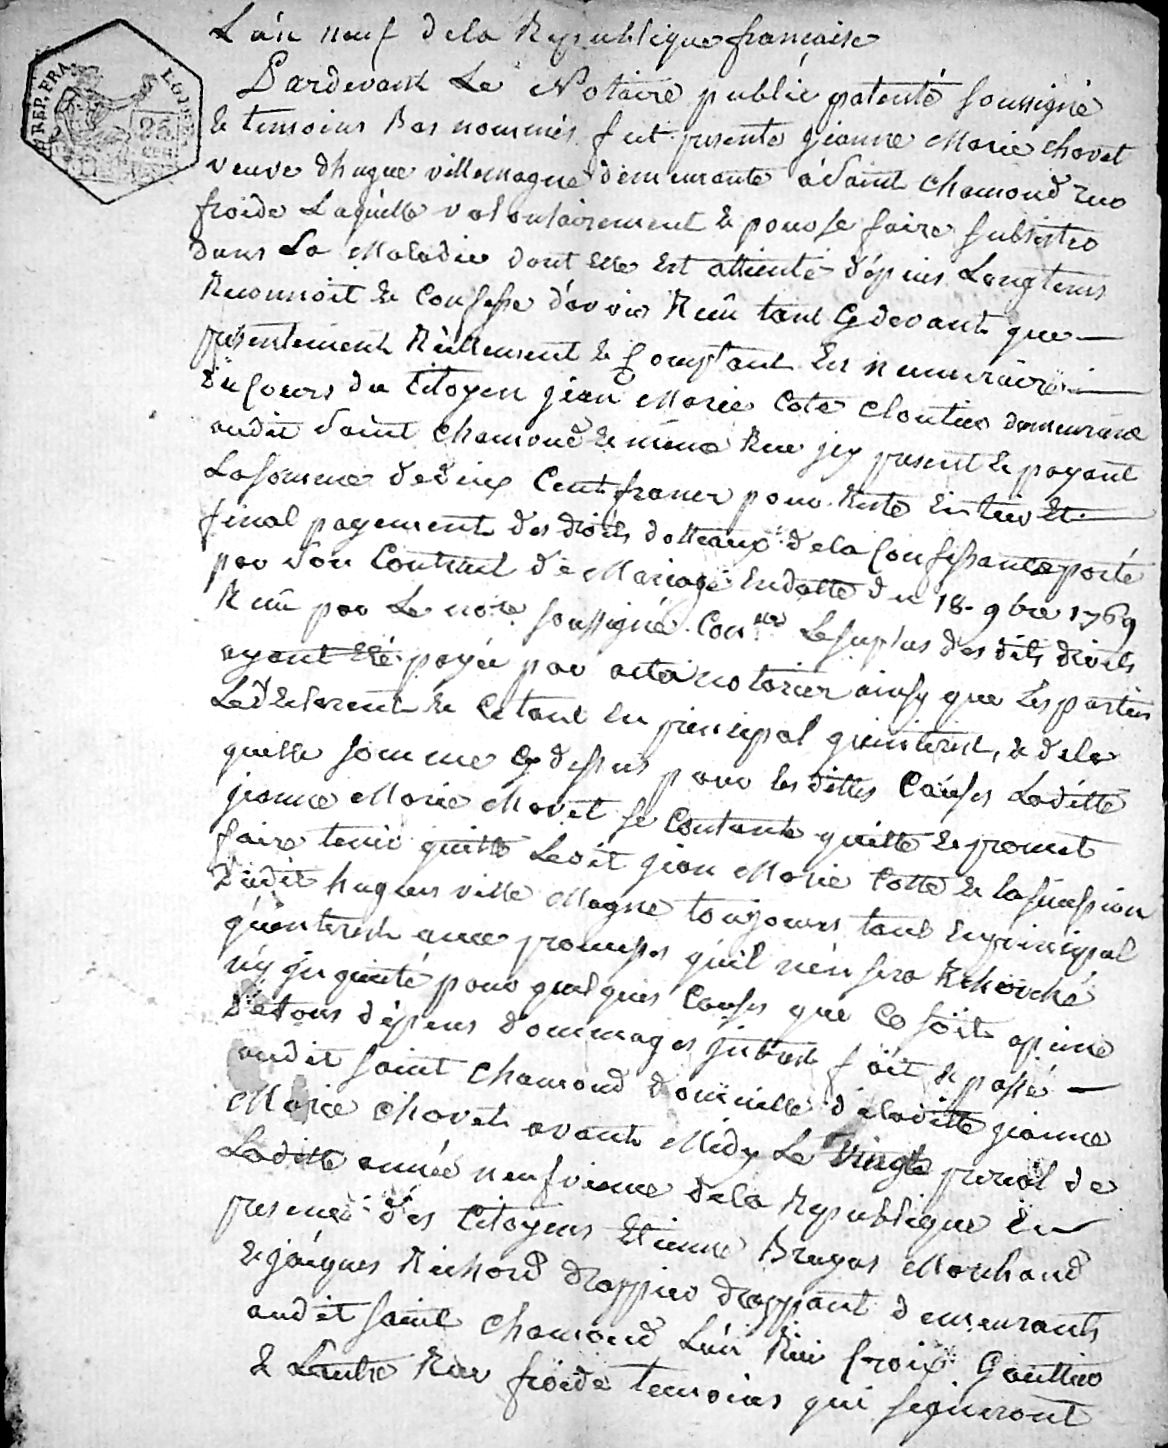 L'an neuf dela Republique francaise
REP. FRA.
25
CEN
Pardevant Le Notaire public patenté soussigné
& temoins Bas nommés fut presente jeanne Marie Chovet
veuve d'hugue villemagne demeurante à Saint Chamond rue
froide Laquelle volontairement & pour se faire subsister
dans La Maladie dont elle Est attiente depuis Longtems
Reconnoit & Confesse d'avoir Reçû tant Cy devant que
presentement Réellement & Comptant En numeraire
du Citoyen jean Marie Cote Cloutier demeurant
audit Saint Chamond & même Rue jcy present & payant
La somme de deux Cent francs pour Reste Entier Et
final payement des droits dottaux de la Confessante porté
par Son Contrat de Mariage En datte du 18. 9bre 1769
Reçû par Le nore soussigné Le surplus des dits droits
ayant Eté payée par actes notoriés ainsy que Les parties
Le declarent & Ce tant En principal qu'interest, & de la
quelle somme Cy dessus pour les dittes Causes Laditte
jeanne Marie Chovet se Contente quitte & promet
faire tenir quitte Ledit jean Marie Cotte & la sucession
dudit hugues ville Magne toujours tant En principal
qu'interest avec promesses qu'il n'en sera Recherché
n'y jnquieté pour quelques Causes que Ce soit apeine
de tous dépens dommages jnterest fait & passé
audit Saint Chamond domicille de laditte jeanne
Marie Chovet avant Midy Le Vingt prerial de
Laditte année neufvieme dela Republique En
presence des Citoyens Etienne Bruyas Marchand
& jacques Richard drappier drappant demeurants
audit Saint Chamond L'un Rue Croix Gauttier
& L'autre Rue froide temoins qui signeront